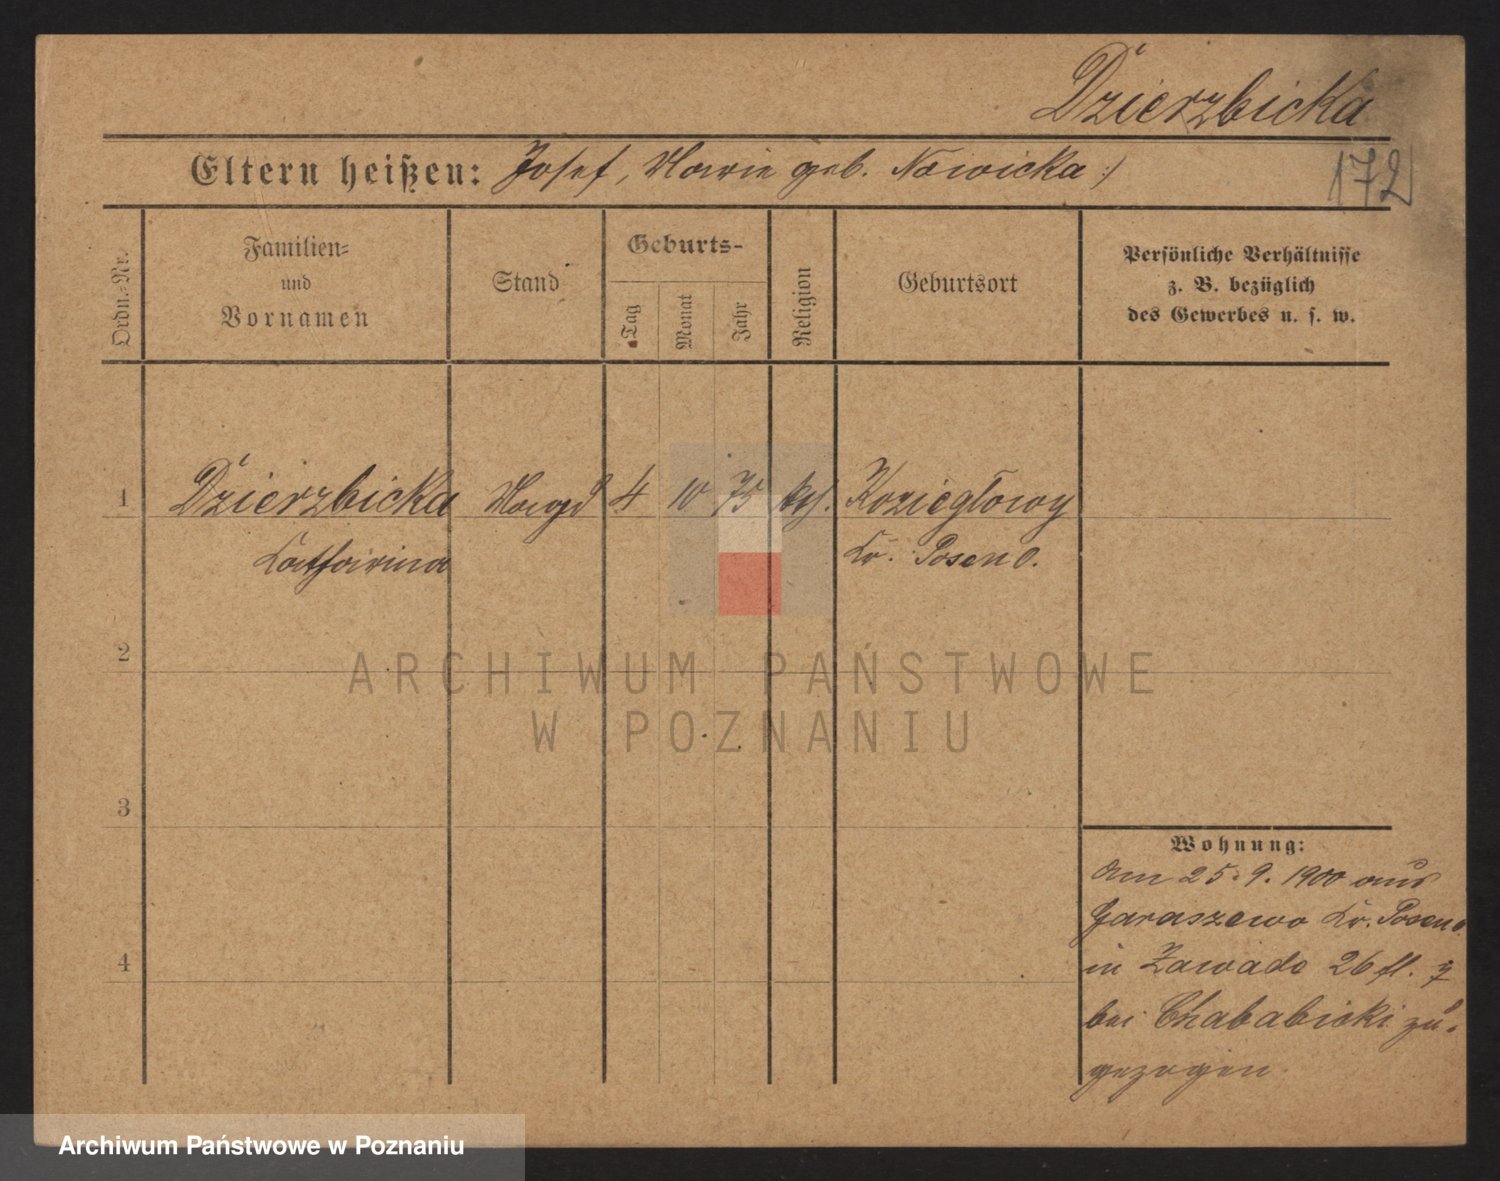 Dzierzbicka
Eltern heißen: Josef, Marie geb. Nowicka :/
172
Ordn.-Nr.
Familien-
und
Vornamen
Stand
Geburts-
Tag
Monat
Jahr
Religion
Geburtsort
Persönliche Verhältnisse
z. B. bezüglich
des Gewerbes u. s. w.
1 Dzierzbicka Magd 4 10 75 kth. Koziegłowy
Katharina Kr. Posen O.
2
ARCHIWUM PAŃSTWOWE
W POZNANIU
3
Wohnung:
Am 25.9.1900 aus
Garaszewo Kr. Posen O.
4
in Zawade 26 fl.
bei Chababicki zu-
gezogen
Archiwum Państwowe w Poznaniu